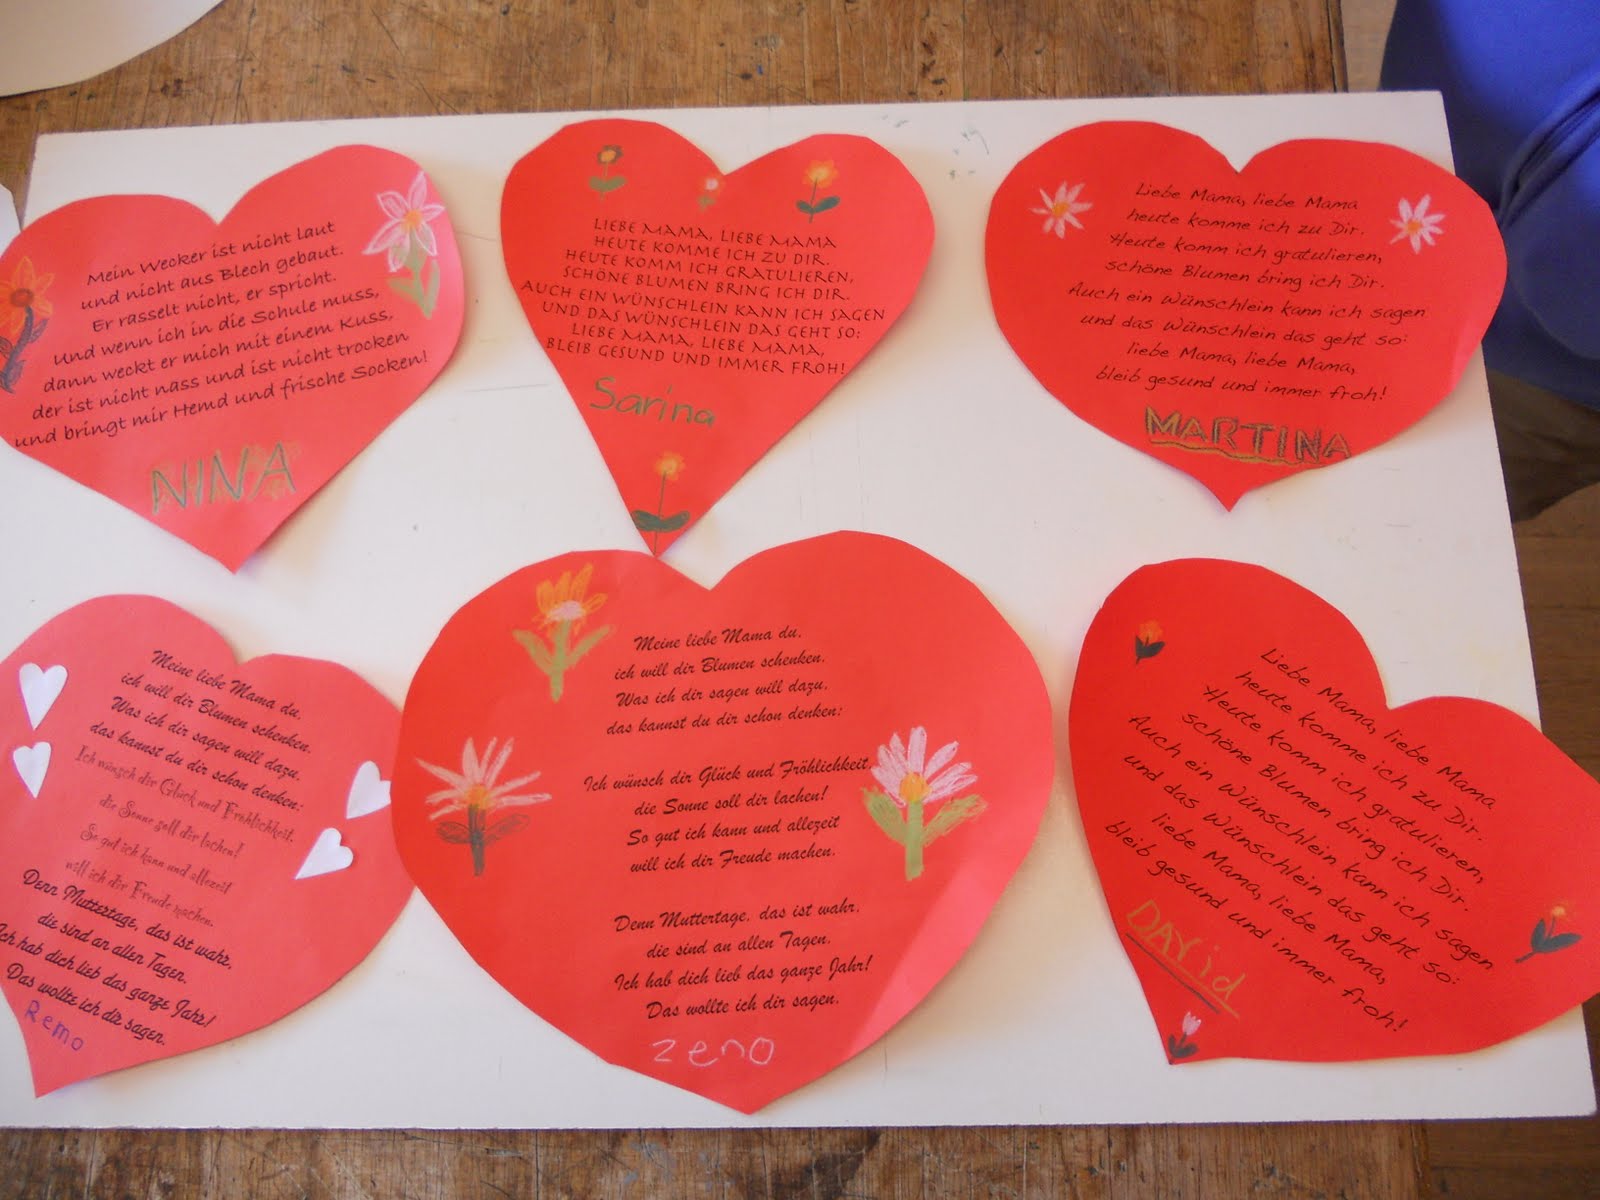 Mein Wecker ist nicht laut
und nicht aus Blech gebaut.
Er rasselt nicht, er spricht.
Und wenn ich in die Schule muss,
dann weckt er mich mit einem Kuss,
der ist nicht nass und ist nicht trocken
und bringt mir Hemd und frische Socken!
NINA
LIEBE MAMA, LIEBE MAMA
HEUTE KOMME ICH ZU DIR.
HEUTE KOMM ICH GRATULIEREN,
SCHÖNE BLUMEN BRING ICH DIR.
AUCH EIN WÜNSCHLEIN KANN ICH SAGEN
UND DAS WÜNSCHLEIN DAS GEHT SO:
LIEBE MAMA, LIEBE MAMA,
BLEIB GESUND UND IMMER FROH!
Sarina
Liebe Mama, liebe Mama
heute komme ich zu Dir.
Heute komm ich gratulieren,
schöne Blumen bring ich Dir.
Auch ein Wünschlein kann ich sagen
und das Wünschlein das geht so:
liebe Mama, liebe Mama,
bleib gesund und immer froh!
MARTINA
Meine liebe Mama du,
ich will dir Blumen schenken.
Was ich dir sagen will dazu,
das kannst du dir schon denken:
Ich wünsch dir Glück und Fröhlichkeit,
die Sonne soll dir lachen!
So gut ich kann und allezeit
will ich dir Freude machen.
Denn Muttertage, das ist wahr,
die sind an allen Tagen.
Ich hab dich lieb das ganze Jahr!
Das wollte ich dir sagen.
Remo
Meine liebe Mama du,
ich will dir Blumen schenken.
Was ich dir sagen will dazu,
das kannst du dir schon denken:
Ich wünsch dir Glück und Fröhlichkeit,
die Sonne soll dir lachen!
So gut ich kann und allezeit
will ich dir Freude machen.
Denn Muttertage, das ist wahr,
die sind an allen Tagen.
Ich hab dich lieb das ganze Jahr!
Das wollte ich dir sagen.
zeno
Liebe Mama, liebe Mama
heute komme ich zu Dir.
Heute komm ich gratulieren,
schöne Blumen bring ich Dir.
Auch ein Wünschlein kann ich sagen
und das Wünschlein das geht so:
liebe Mama, liebe Mama,
bleib gesund und immer froh!
DAVid